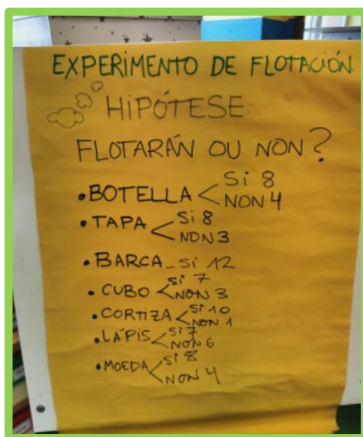 EXPERIMENTO DE FLOTACIÓN
HIPÓTESE:
FLOTARÁN OU NON?
• BOTELLA < Si 8
NON 4
• TAPA < Si 8
NON 3
• BARCA - Si 12
• CUBO < Si 7
NON 3
• CORTIZA < Si 10
NON 1
• LÁPIS < Si 7
NON 6
• MOEDA < Si 8
NON 4